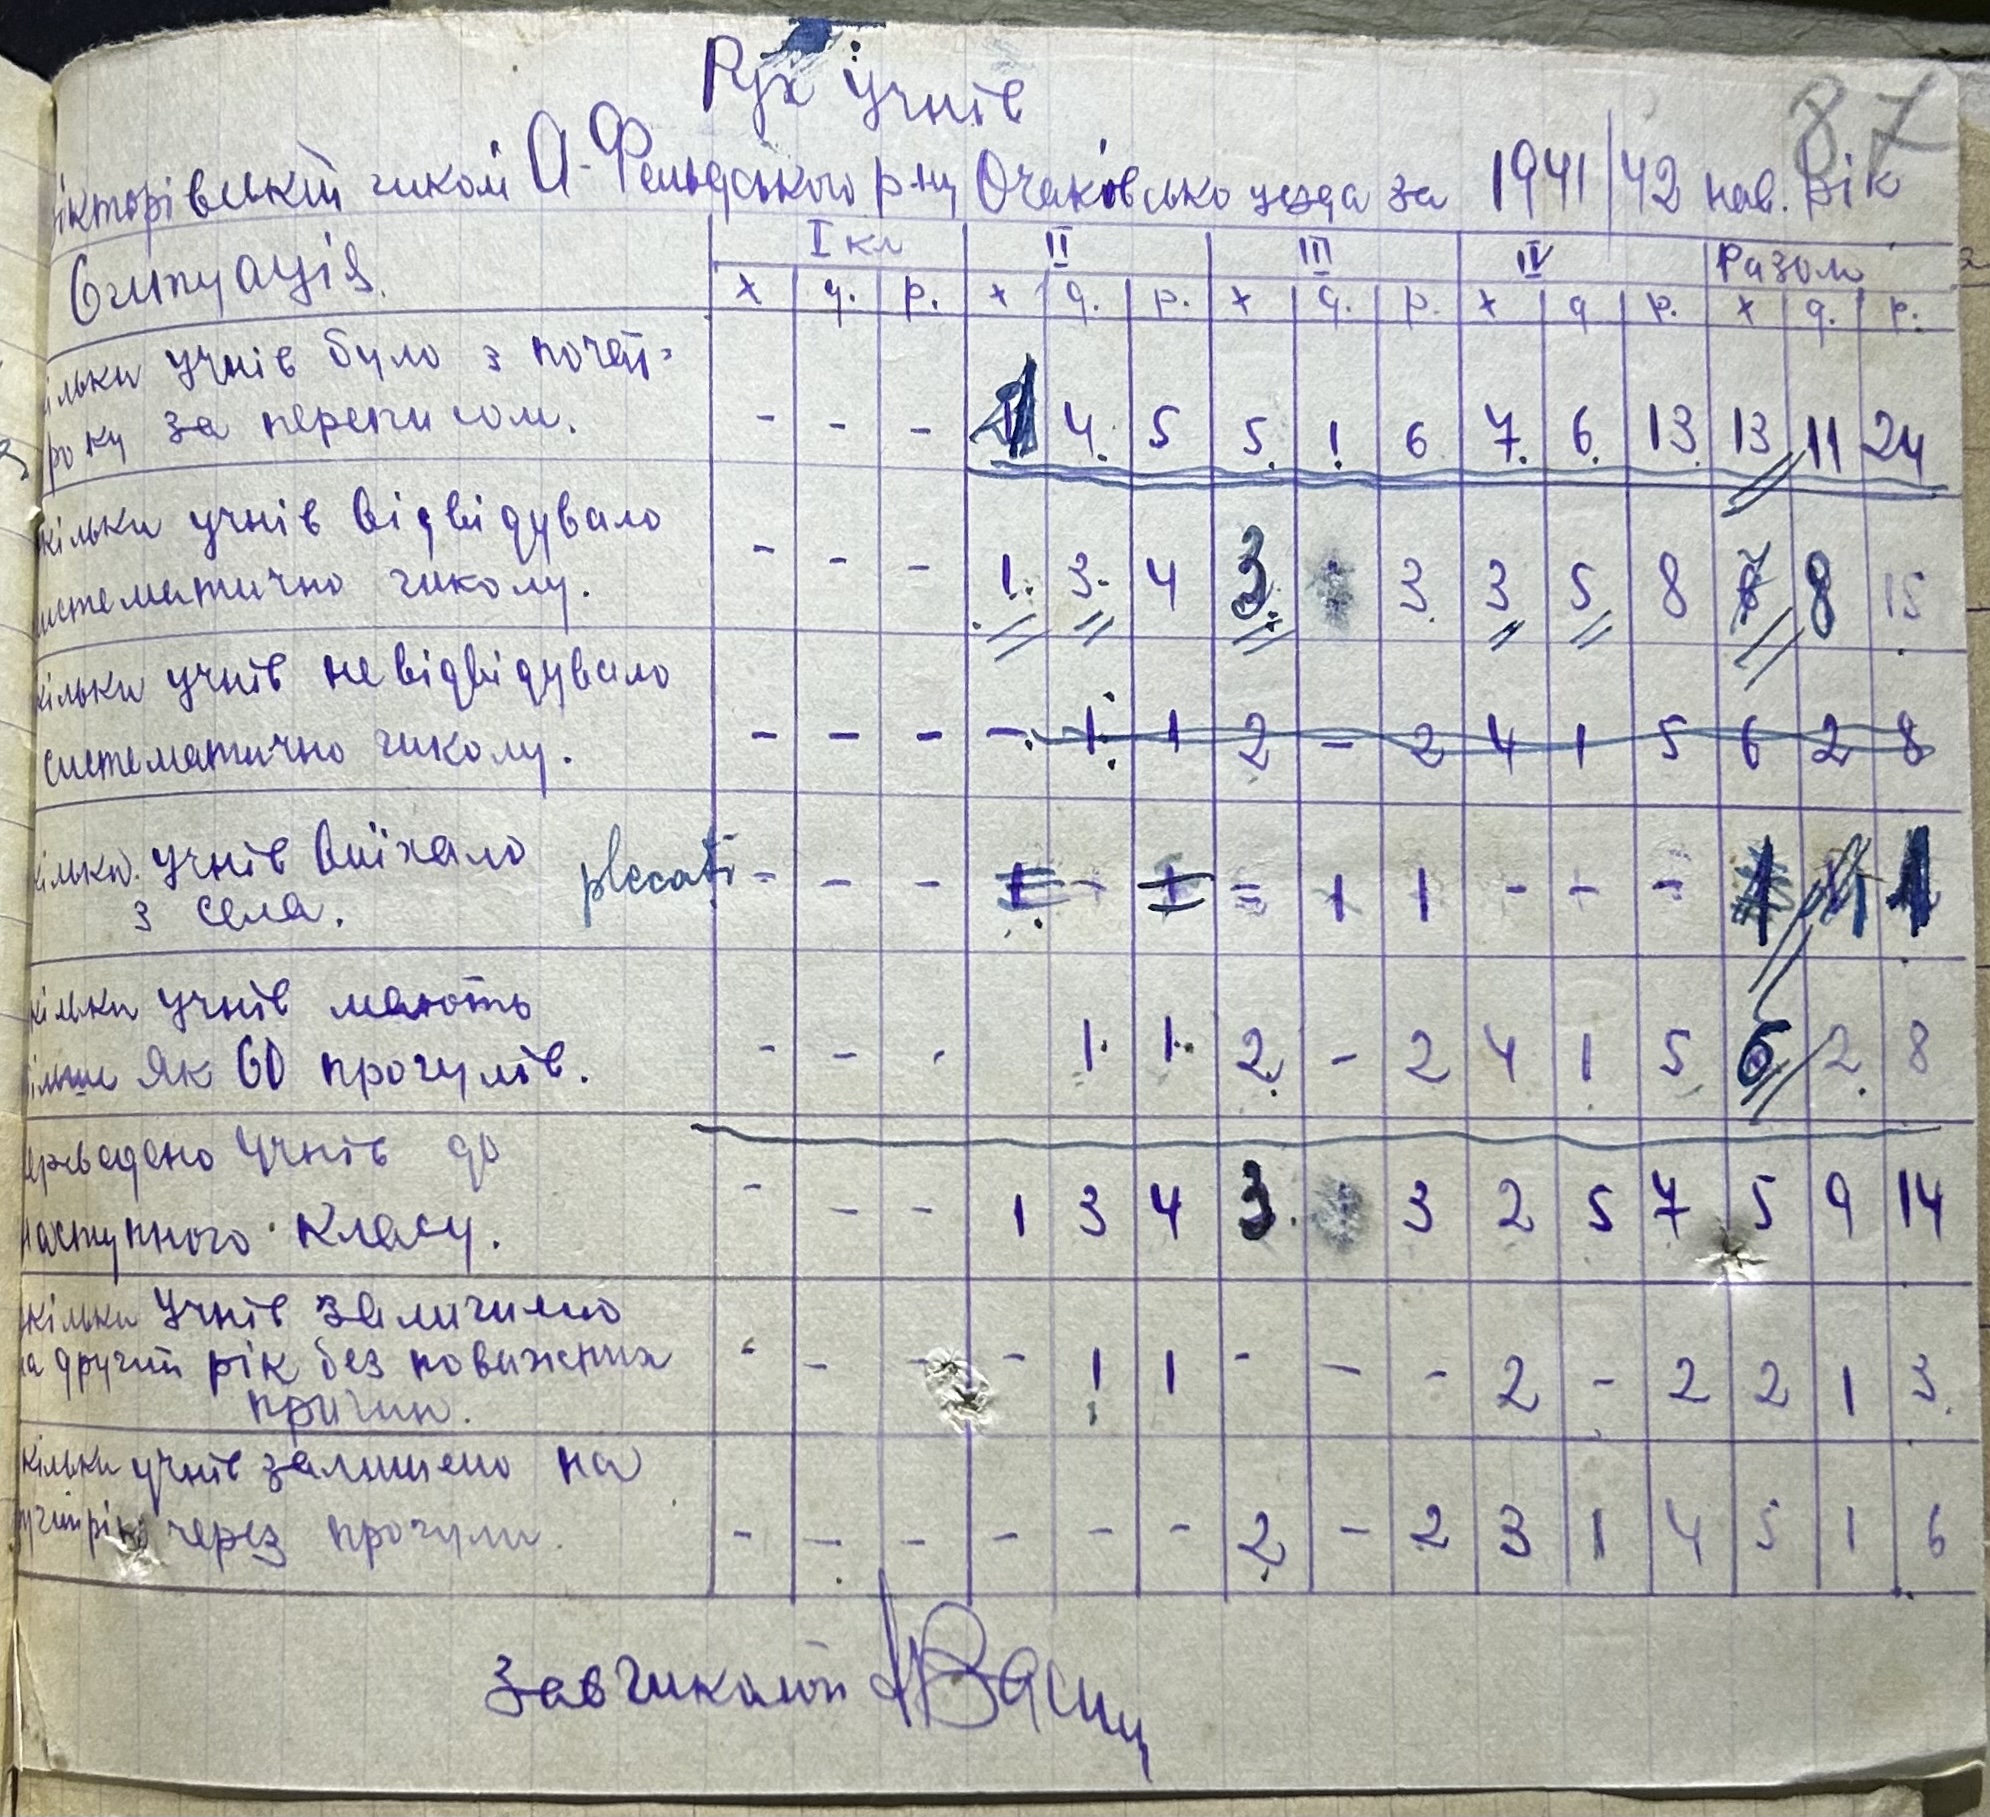 Рух учнів
87
вікторівській школі А-Фельдського р-ну Очаківсько уезда за 1941/42 нав. рік
Ситуація I кл II III IV Разом
х д. р. х д. р. х д. р. х д р. х д. р.
ільки учнів було з почат-
року за переписом. - - - 1 4. 5 5. 1. 6 7. 6. 13 13 11 24
кільки учнів відвідувало
истематично школу. - - - 1. 3. 4 3. 3. 3 5 8 7 8 15
кільки учнів невідвідувало
систематично школу. - - - - 1 1 2 - 2 4 1 5 6 2 8
ільки учнів виїхало plecați
з села. - - - 1 - 1 = 1 1 - - - 1
кільки учнів мають
більше як 60 прогулів. - - - 1. 1. 2. - 2 4 1 5 6 2. 8
ереведено учнів до
наступного класу. - - - 1 3 4 3. 3 2 5 7 5 9 14
кільки учнів залишено
на другий рік без поважних
причин. - - - - 1 1 - - - 2 - 2 2 1 3.
кільки учнів залишено на
через прогули. - - - - - - 2 - 2 3 1 4 5 1 6
Завшколой